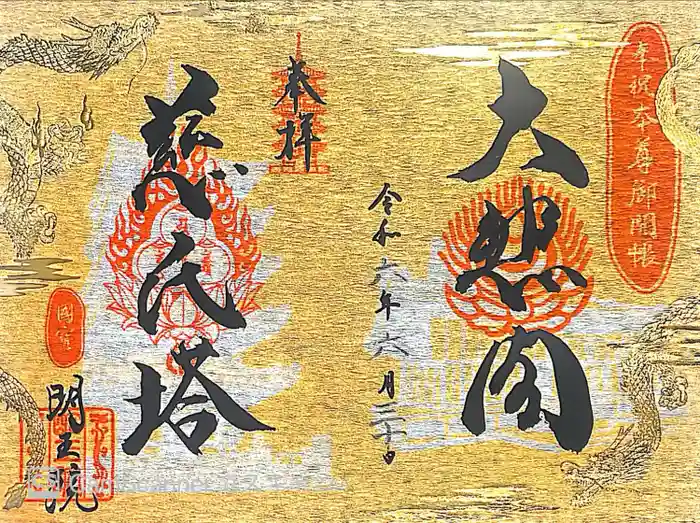 奉祝本尊御開帳
大悲閣
令和六年六月二十日
奉拝
慈氏塔
國寳
明王院